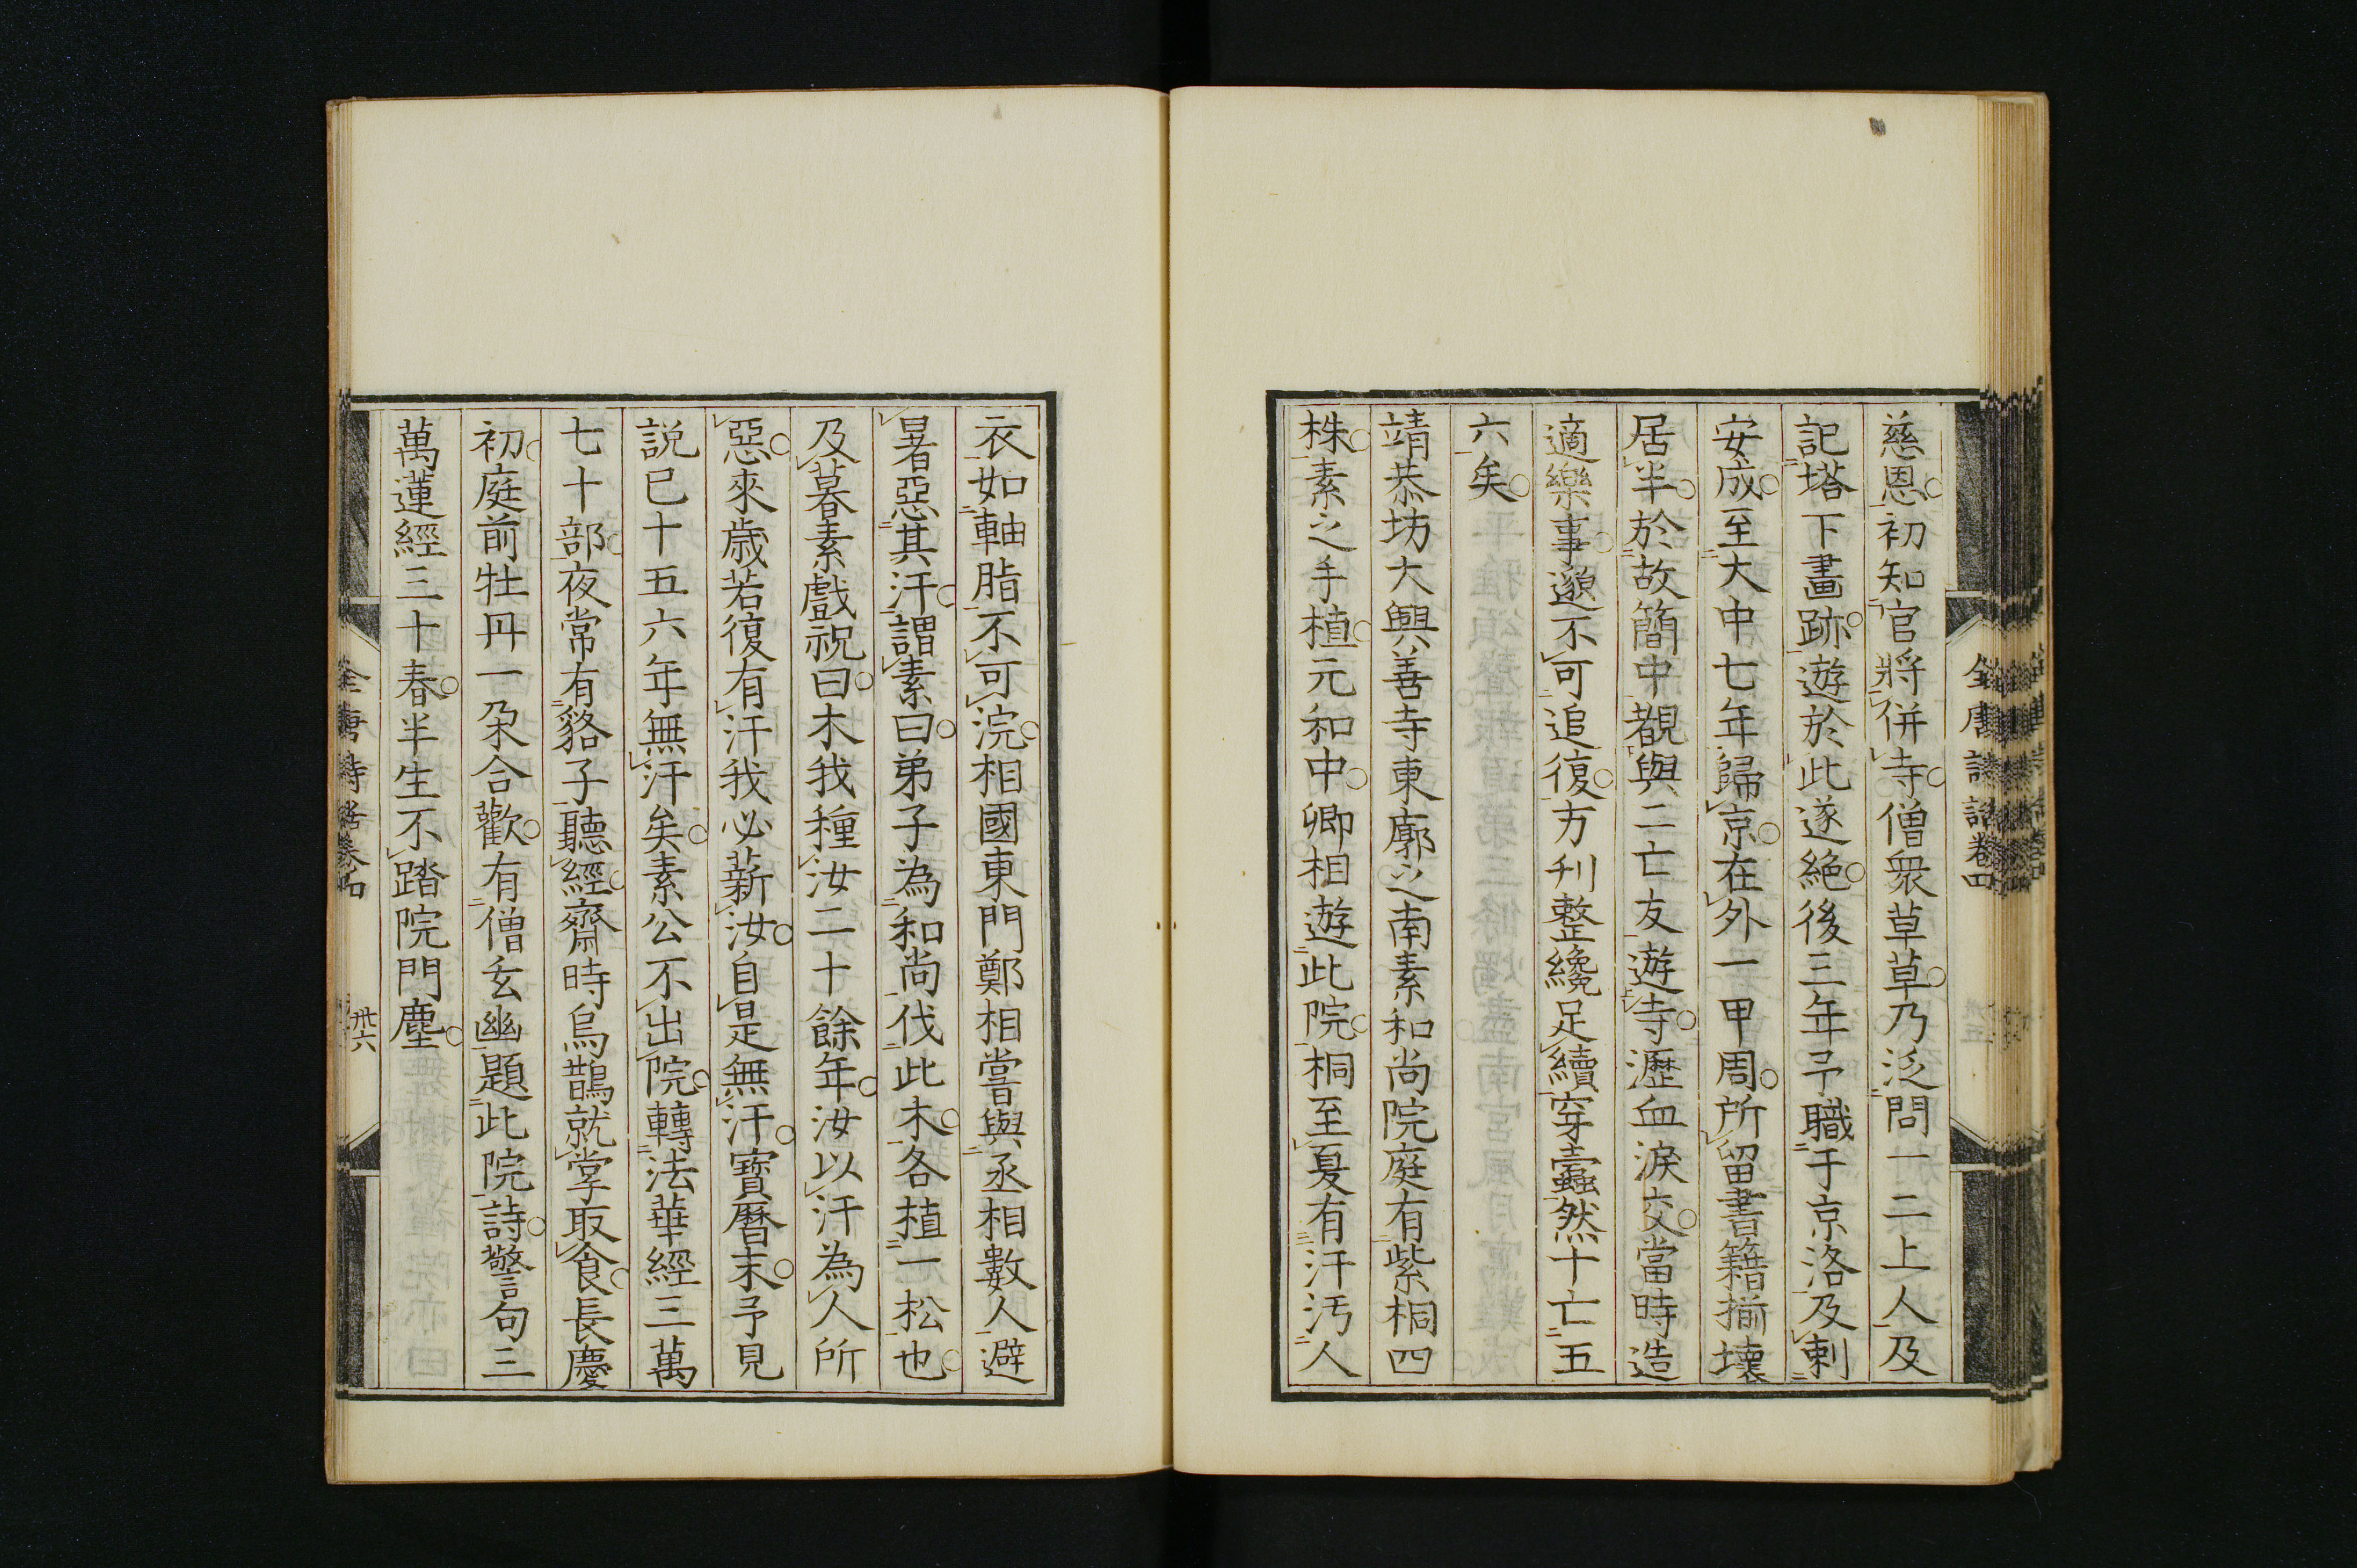 慈恩初知官將併寺僧衆草草乃泛問一二上人及
記塔下畫跡遊於此遂絶後三年予職于京洛及剌
安成至大中七年歸京在外一甲周所留書籍揃壞
居半於故簡中覩與二亡友遊寺瀝血淚交當時造
適樂事邈不可追復方刋整纔足續穿蠹然十亡五
六矣
靖恭坊大興善寺東廓之南素和尚院庭有紫桐四
株素之手植元和中卿相遊此院桐至夏有汗汚人
全唐詩話卷四
衣如軸脂不可浣相國東門鄭相嘗與丞相數人避
暑惡其汗謂素曰弟子為和尚伐此木各植一松也
及暮素戲祝曰木我種汝二十餘年汝以汗為人所
惡來歳若復有汗我必薪汝自是無汗寳曆末予見
説已十五六年無汗矣素公不出院轉法華經三萬
七十部夜常有貉子聽經齋時烏鵲就掌取食長慶
初庭前牡丹一朶合歡有僧玄幽題此院詩警句三
萬蓮經三十春半生不踏院門塵
全唐詩話卷四
卅六